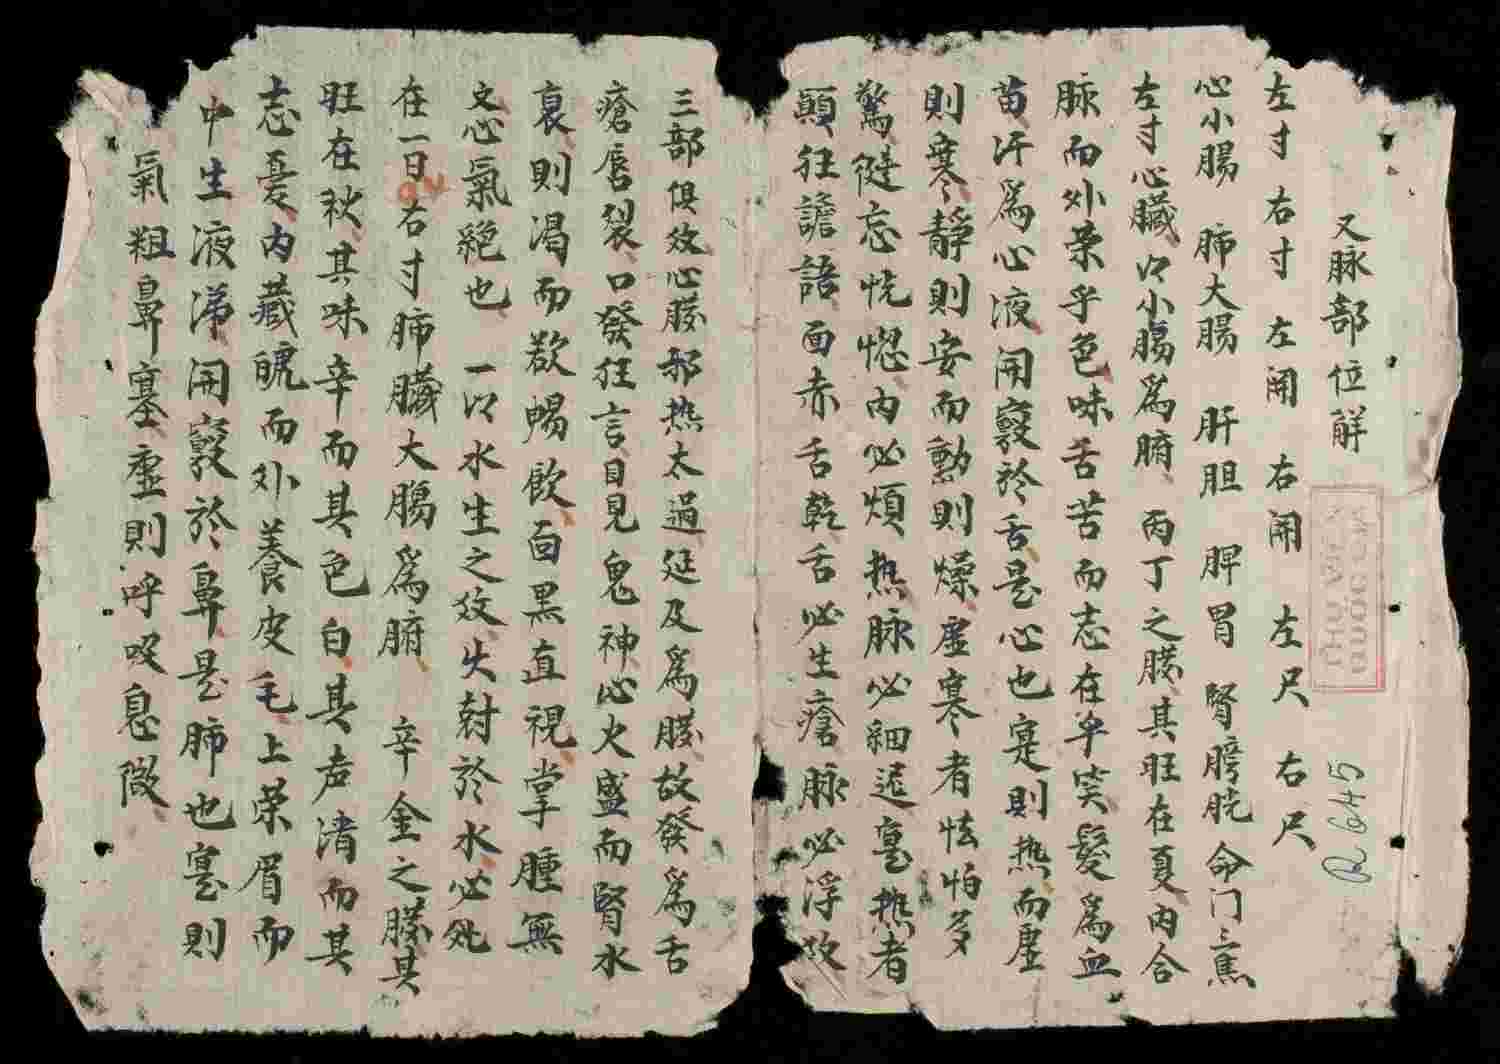 又脉部位解
左寸右寸 左関 右関 左尺 右尺
心小腸 肺大腸 肝胆 脾胃 腎膀胱 命门三焦
左寸心臓以小腸為腑 丙丁之臓其旺在夏内合
脉而外荣乎色味舌苦而志在 笑髮為血
苗汗為心液開竅於舌是心也寔則热而
則寒静則安而動則燥虚寒者怯怕多
驚健忘恍惚内必煩热脉必細遲寔热者
顛狂譫語面赤舌乾舌必生瘡脉必浮数
三部俱效心臓邪热太過延及為臓故發為舌
瘡唇裂口發狂言目見鬼神心火盛而腎水
衰則渴而欲 飲面黑直視掌腫無
文心氣絶也 一以水生之效火尅於水必死
在一日右寸肺臓大腸為腑 辛金之臓其
旺在秋其味辛而其色白其声清而其
志憂内藏魄而外養皮毛上荣眉而
中生液涕開竅於鼻是肺也寔則
氣粗鼻塞虚則呼吸息微
R.645